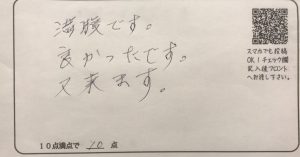 満腹です。
良かったです。
又来ます。
スマホでも投稿
OK!チェック欄
記入後フロント
へお渡し下さい。
10点満点で 10 点